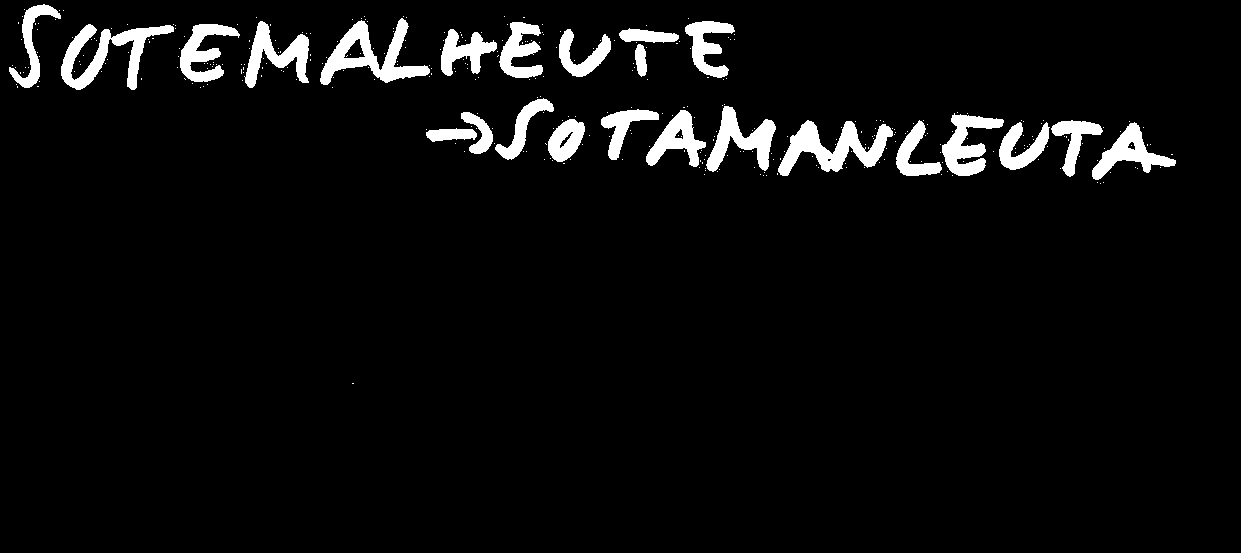 SOTEMALHEUTE
→SOTAMANLEUTA